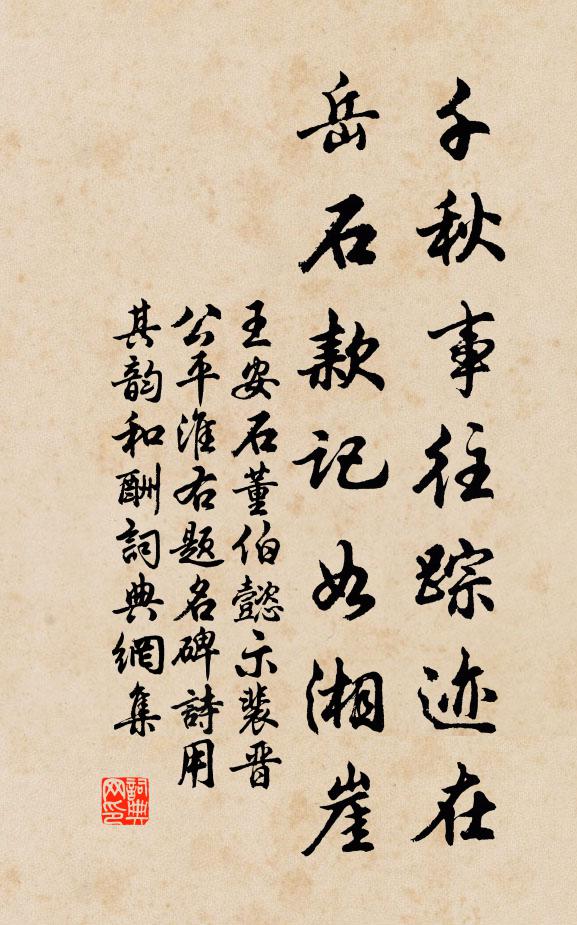 千秋事往踪迹在
岳石款记如湘崖
王安石董伯懿示裴晋
公平淮右题名碑詩用
其韵和酬詞典網集
詞典网印